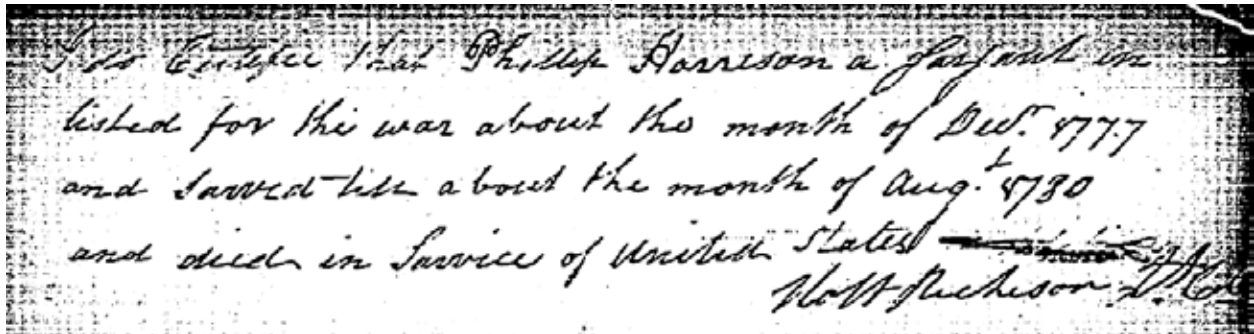 I do Certifee that Phillip Harreson a Sarjant in
listed for the war about the month of Decr. 1777
and Sarved till about the month of Augt. 1780
and died in Sarvice of United States
Holt Richeson